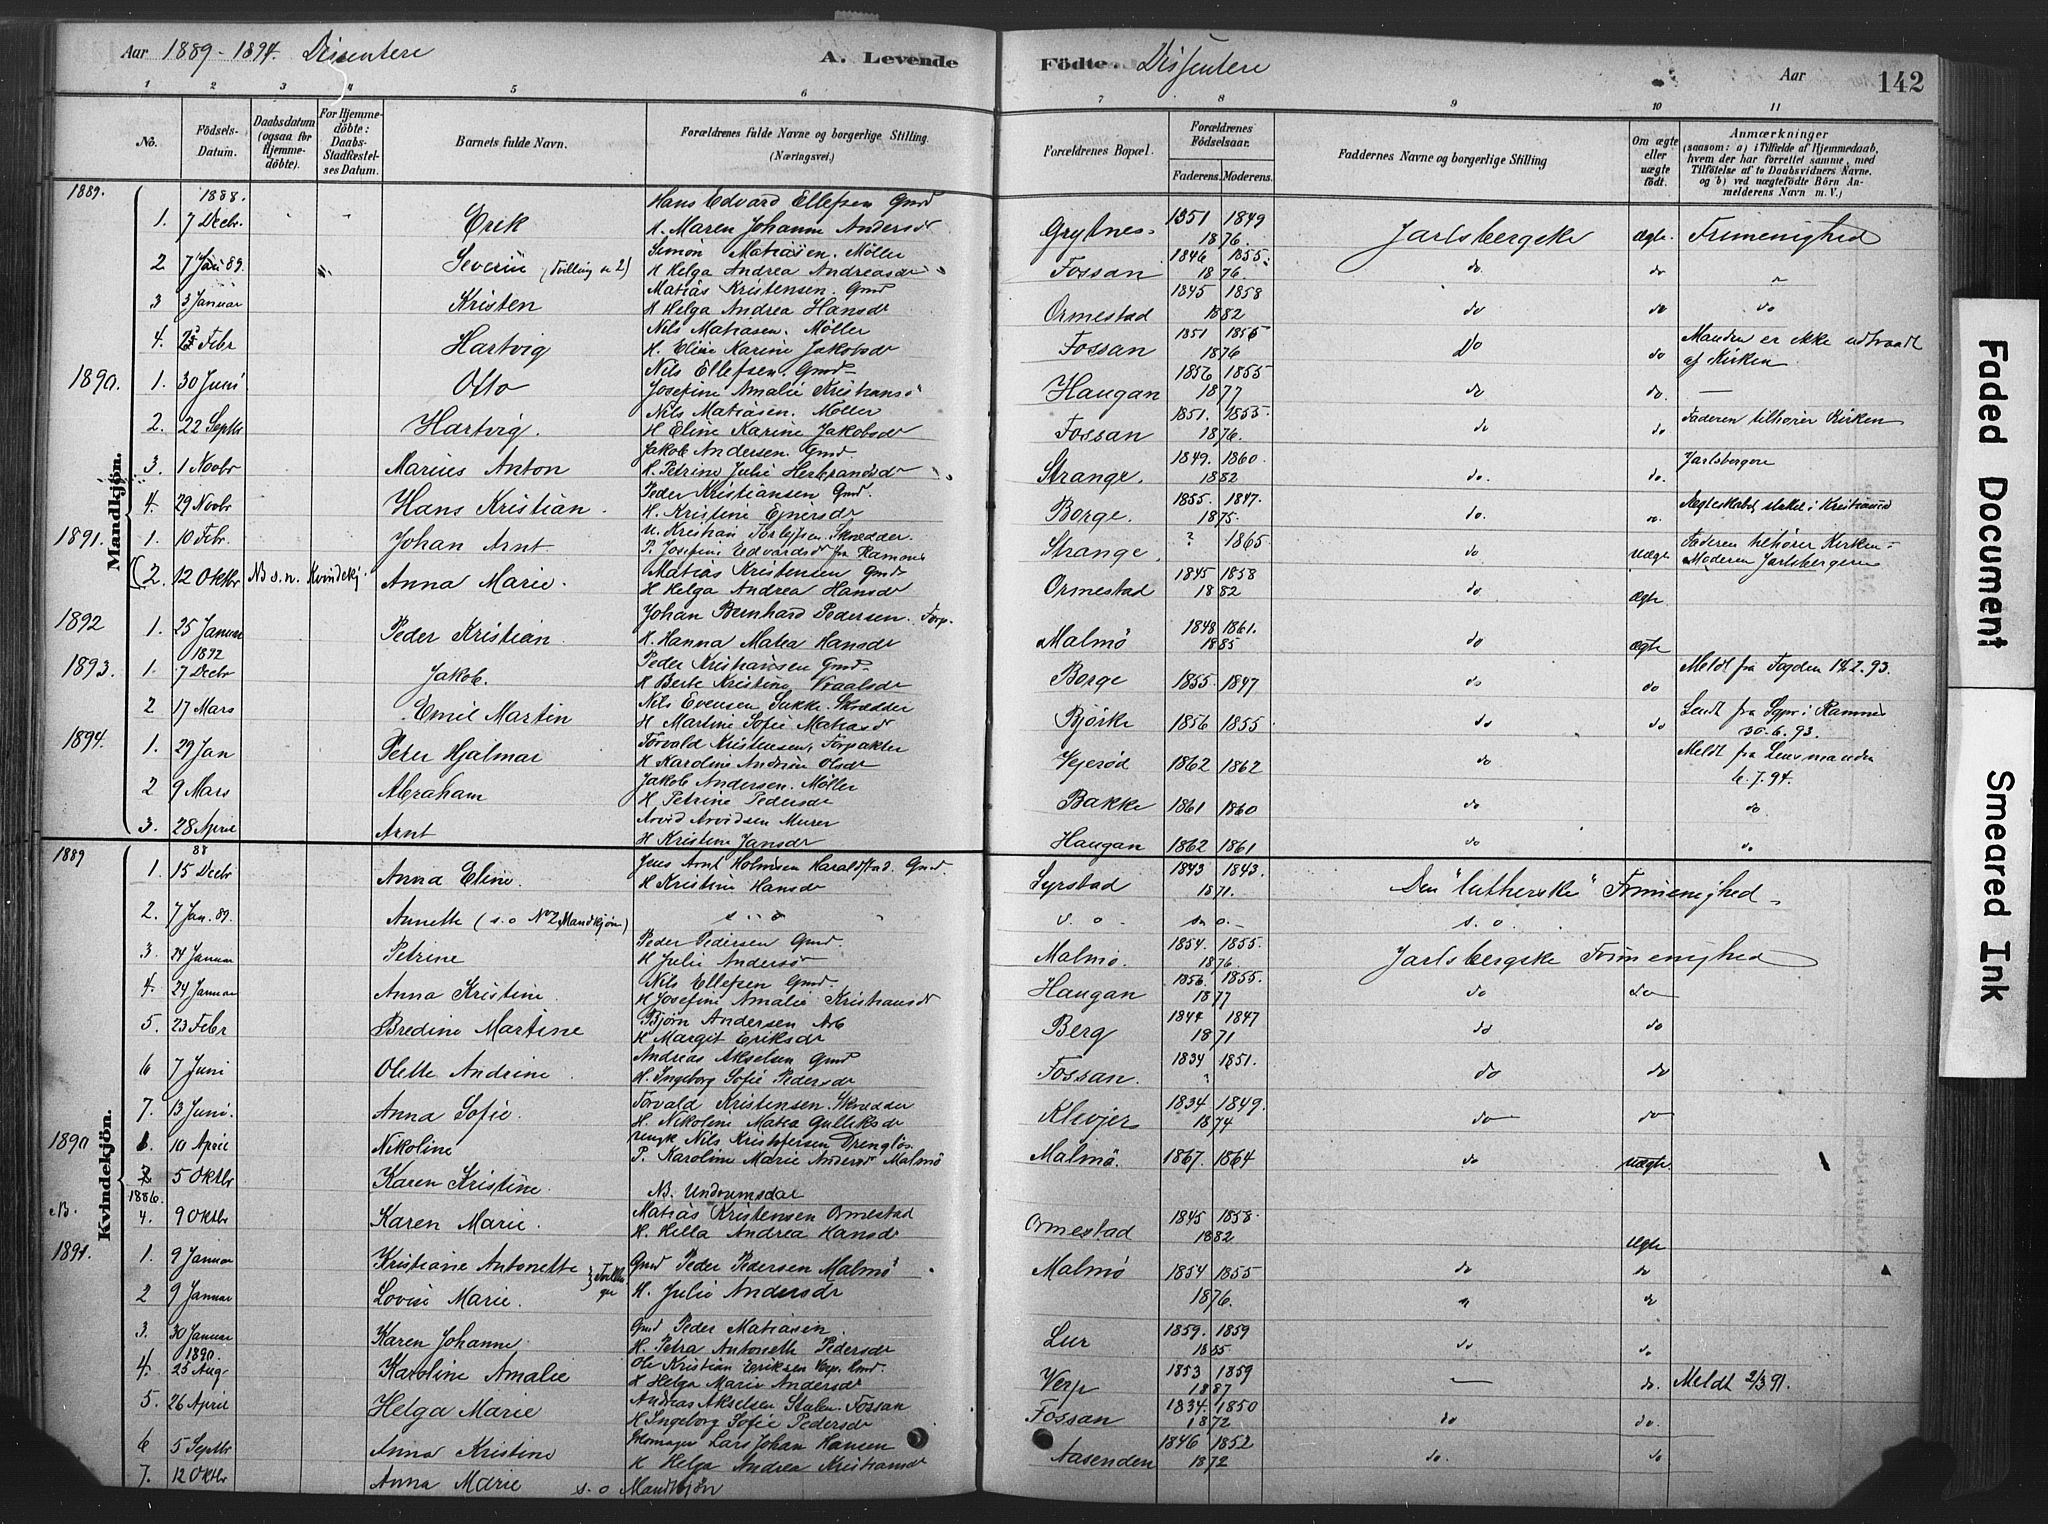 Aar 1889-1894. Dissentere
A. Levende
Födte. Dissentere
Aar
142
1 2 3 4 5 6 7 8 9 10 11
No.
Födsels-Datum.
Daabsdatum (ogsaa for Hjemmedöbte).
For Hjemmedöbte: Daabs-Stadfæstelses Datum.
Barnets fulde Navn.
Forældrenes fulde Navne og borgerlige Stilling. (Næringsvei.)
Forældrenes Bopæl.
Forældrenes Födselsaar.
Faderens. Moderens.
Faddernes Navne og borgerlige Stilling
Om ægte eller uægte födt.
Anmærkninger
(saasom: a) i Tilfælde af Hjemmedaab, hvem der har forrettet samme, med Tilföielse af to Daabsvidners Navne. og b) ved uægtefödte Börn Anmelderens Navn m. V.)
Mandkjön.
1889. 1888. Hans Edvard Ellefsen Gmd
1. 7 Decbr. Erik H. Maren Johanne Andersdr Grytnes 1851 1849 1876. Jarlsbergske ægte. Frimenighed
2. 7 Jan 89. Severin (Tvilling n 2) Simon Matiasen. Møller
H Helga Andrea Andreasdr Fossan 1846 1855. 1876. do. do "
3 3 Januar Kristen Matias Kristensen. Gmd
H Helga Andrea Hansdr Ormestad 1845 1858 1882 do do do
4. 25 Febr Hartvig Nils Matiasen. Møller
H. Eline Karine Jakobsdr Fossan 1851 1855 1876 Do do Manden er ikke udtraadt af Kirken.
1890. 1. 30 Juni Otto Nils Ellefsen. Gmd
Josefine Amalie Kristiansd Haugan 1856 1855 1877 do do. —
2. 22 Septbr Hartvig. Nils Matiasen. Møller
H Eline Karine Jakobsdr Fossan 1851. 1855. 1876. do do Faderen tilhører Kirken
3. 1 Novbr Marius Anton Jakob Andersen. Gmd
H. Petrine Julie Herbrandsdr Strange. 1849. 1860. 1882 do. do. Jarlsbergere
4. 29 Novbr Hans Kristian. Peder Kristiansen Gmd.
H. Kristine Ejnersdr Borge. 1855. 1847. 1875. do. do. Ægteskabet sluttet i Kristiania
1891. 1. 10 Febr. Johan Arnt. U. Kristian Torleifsen. Skrædder.
P. Josefine Edvardsdr fra Ramnes Strange. ? 1865. do uægte Faderen tilhører Kirken - Moderen Jarlsbergeren
2. 12 Oktbr NB s. n. Kvindekj. Anna Marie. Matias Kristensen Gmd
H Helga Andrea Hansdr Ormestad 1845 1858 1882 do ægte.
1892 1. 25 Januar Peder Kristian. Johan Bernhard Pedersen. Forp.
H. Hanna Matea Hansdr Malmö 1848 1861. 1885 do ægte
1893. 1. 1892 7 Decbr Jakob. Peder Kristiansen Gmd
H Berte Kristine Vraalsdr Borge 1855. 1847 do do Meldt fra Fogden 14.2.93.
2 17 Mars Emil Martin Nils Evensen Sukke. Skrædder
H Martine Sofie Matiasd Björke 1856 1855 do do Sendt fra Sgpr i Ramnes 30.6.93.
1894. 1. 29 Jan Peter Hjalmar Torvald Kristensen, Forpakter
H Karoline Andrine Olsdr Vejeröd 1862 1862 do Meldt fra Lensmanden 6.7.94.
2 9 Mars Abraham Jakob Andersen. Møller
H Petrine Pedersdr Bakke 1861 1860 do do
3. 28 April Arnt Arvid Arvidsen Murer
H Kristine Jansdr Haugan 1862 1861 do "
Kvindekjön.
1889 88
1. 15 Decbr Anna Eline. Jens Arnt Holmsen Haraldstad. Gmd.
H Kristine Hansdr Lyrstad 1843 1843. 1871. Den "lutherske" Frimenighed
2. 7 Jan. 89. Annette (s. o No 2 Mandkjön) s. o s. o. s. o. s. o
3. 24 Januar Petrine Peder Pedersen Gmd.
H Julie Andersdr Malmö. 1854. 1855. 1876. Jarlsbergske Frimenighed
4. 24 Januar Anna Kristine. Nils Ellefsen Gmd.
H Josefine Amalie Kristiansdr Haugan 1856. 1855. 1877 do do
5. 23 Febr Bredine Martine Bjørn Andersen Arb
H Margit Eriksdr Berg 1844 1847 1871 do do
6 7 Juni Olette Andrine Andreas Akselsen Gmd
H. Ingeborg Sofie Pedersdr Fossan. 1834 1851. ? do do
7. 13 Juni. Anna Sofie. Torvald Kristensen. Skrædder
H. Nikoline Matea Gulliksdr Klevjer 1834 1849. 1874 do do
1890 1. 10 April Nikoline ungk Nils Kristofersen Drengløs.
P. Karoline Marie Andersdr Malmö Malmö. 1867. 1864 do uægte
2 5 Oktbr Karen Kristine.
NB. 1886. NB. Undrumsdal
4. 9 Oktbr Karen Marie. Matias Kristensen Ormestad
H. Hella Andrea Hansdr Ormestad 1845 1858. 1882 ægte
1891. 1. 9 Januar Kristiane Antonette } Tvillinger Gmd Peder Pedersen Malmö Malmö 1854 1855 do do
2 9 Januar Lovise Marie. H. Julie Andersdr 1876. " do
3. 30 Januar Karen Johanne. Gmd Peder Matiasen.
H. Petra Antoneth Pedersdr Lur 1859. 1859 1885 do do
4. 1890. 25 Aug. Karoline Amalie Ole Kristian Eriksen Verp. Gmd.
H Helga Marie Andersdr Verp 1853 1859 1887 — do. Meldt 2/3 91.
5. 26 April Helga Marie Andreas Akselsen Stalen Fossan
H Ingeborg Sofie Pedersdr Fossan 1834. 1850 1872 do do.
6 5 Septbr Anna Kristine Skomager Lars Johan Hansen
H Helga Andrea Kristiansdr Aasenden 1846 1852 1872 do. do
7. 12 Oktbr Anna Marie s. o Mandkjön
Faded Document
Smeared Ink